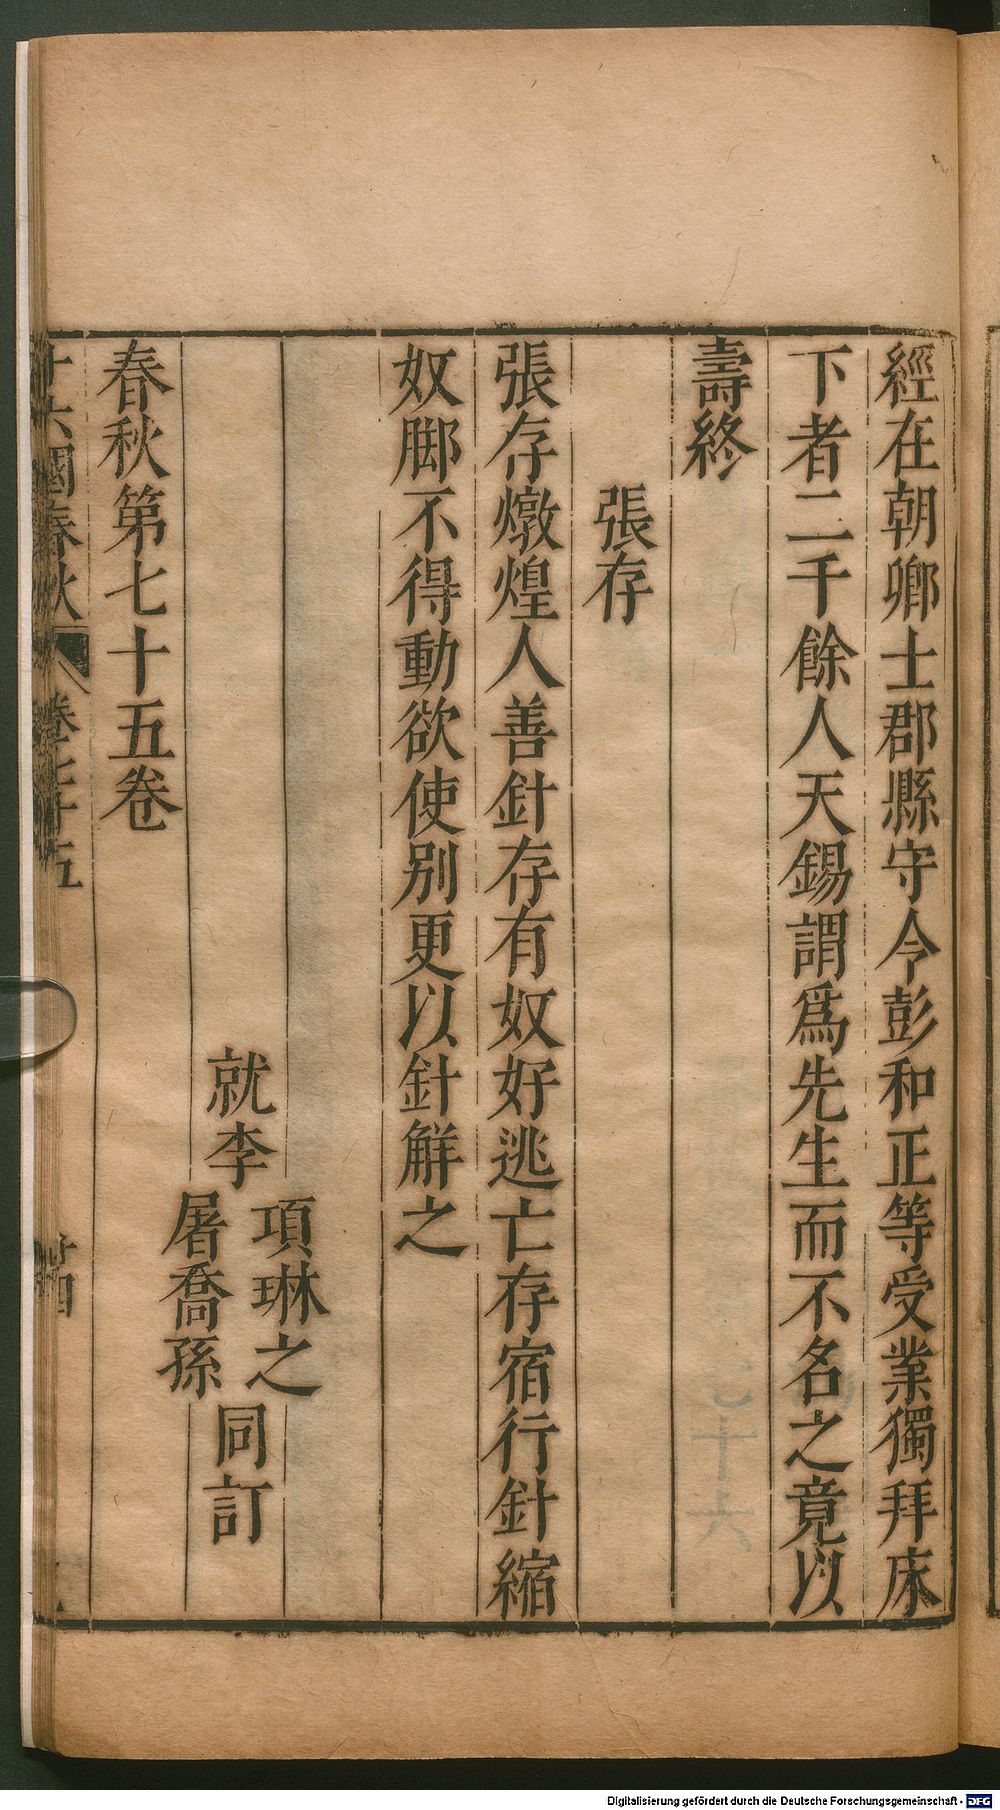 經在朝卿士郡縣守令彭和正等受業獨拜床
下者二千餘人天錫謂爲先生而不名之竟以
壽終
張存
張存燉煌人善針存有奴好逃亡存宿行針縮
奴脚不得動欲使别更以針解之
項琳之
就李
屠喬孫
同訂
春秋第七十五卷
十六國春秋
卷七十五
Digitalisierung gefördert durch die Deutsche Forschungsgemeinschaft - DFG